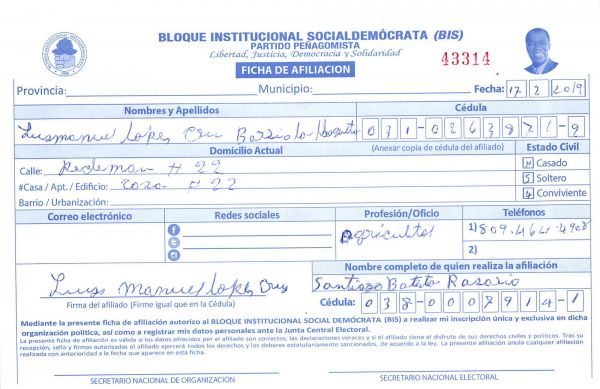 BLOQUE INSTITUCIONAL SOCIALDEMÓCRATA (BIS)
PARTIDO PEÑAGOMISTA
Libertad, Justicia, Democracia y Solidaridad
43314
FICHA DE AFILIACION
Provincia: Municipio: Fecha: 17 2 2019
Nombres y Apellidos Cédula
Luis manuel lopes Cru 031-0263871-9
Domicilio Actual (Anexar copia de cédula del afiliado) Estado Civil
Calle: # 22 Casado
#Casa / Apt. / Edificio: casa # 22 S Soltero
Barrio / Urbanización: 4 Conviviente
Correo electrónico Redes sociales Profesión/Oficio Teléfonos
agricultor 1) 809-464-4908
2)
Nombre completo de quien realiza la afiliación
Luis Manuel lopes Cruz Santiago Batista Rasario
Firma del afiliado (Firme igual que en la Cédula) Cédula: 038-0007914-1
Mediante la presente ficha de afiliación autorizo al BLOQUE INSTITUCIONAL SOCIAL DEMÓCRATA (BIS) a realizar mi inscripción única y exclusiva en dicha
organización política, así como a registrar mis datos personales ante la Junta Central Electoral.
La presente ficha de afiliación es válida si los datos ofrecidos por el afiliado son correctos, las declaraciones veraces y si el afiliado tiene el disfrute de sus derechos civiles y políticos. Tras su
recepción, sello y firmas autorizadas el afiliado ejercerá todos los derechos y los deberes estatutariamente sancionados, de acuerdo a la ley. La presente afiliación anula cualquier afiliación
realizada con anterioridad a la fecha que aparece en esta ficha.
SECRETARIO NACIONAL DE ORGANIZACIÓN SECRETARIO NACIONAL ELECTORAL